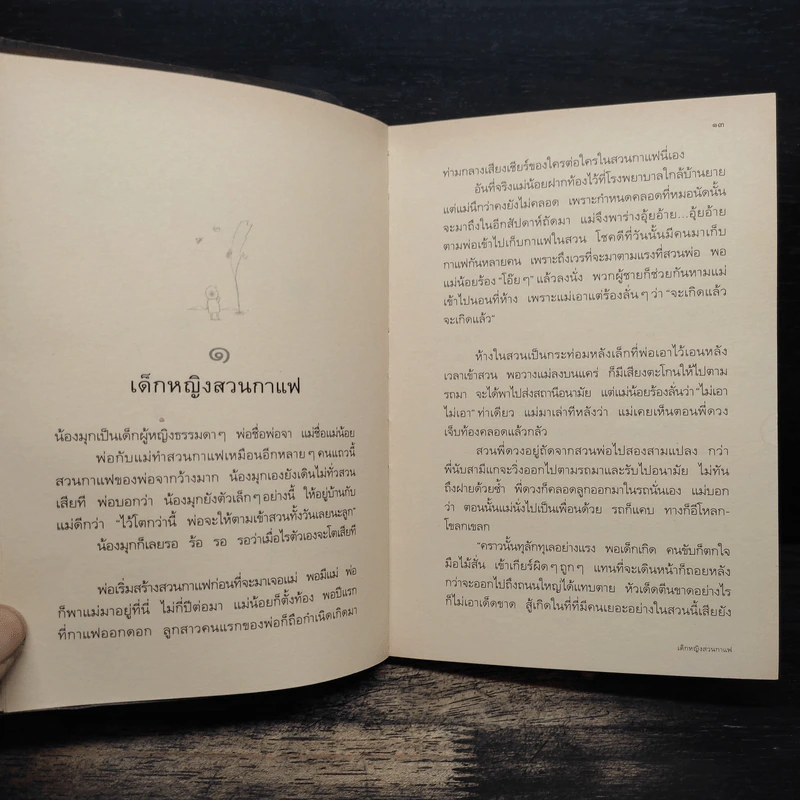 ๑
เด็กหญิงสวนกาแฟ
น้องมุกเป็นเด็กผู้หญิงธรรมดาๆ พ่อชื่อพ่อจา แม่ชื่อแม่น้อย
พ่อกับแม่ทำสวนกาแฟเหมือนอีกหลายๆ คนแถวนี้
สวนกาแฟของพ่อจากว้างมาก น้องมุกเองยังเดินไม่ทั่วสวน
เสียที พ่อบอกว่า น้องมุกยังตัวเล็กๆ อย่างนี้ ให้อยู่บ้านกับ
แม่ดีกว่า “ไว้โตกว่านี้ พ่อจะให้ตามเข้าสวนทั้งวันเลยนะลูก”
น้องมุกก็เลยรอ ร้อ รอ รอว่าเมื่อไรตัวเองจะโตเสียที
พ่อเริ่มสร้างสวนกาแฟก่อนที่จะมาเจอแม่ พอมีแม่ พ่อ
ก็พาแม่มาอยู่ที่นี่ ไม่กี่ปีต่อมา แม่น้อยก็ตั้งท้อง พอปีแรก
ที่กาแฟออกดอก ลูกสาวคนแรกของพ่อก็ถือกำเนิดเกิดมา
๑๓
ท่ามกลางเสียงเชียร์ของใครต่อใครในสวนกาแฟนี่เอง
อันที่จริงแม่น้อยฝากท้องไว้ที่โรงพยาบาลใกล้บ้านยาย
แต่แม่นึกว่าคงยังไม่คลอด เพราะกำหนดคลอดที่หมอนัดนั้น
จะมาถึงในอีกสัปดาห์ถัดมา แม่จึงพาร่างอุ้ยอ้าย...อุ้ยอ้าย
ตามพ่อเข้าไปเก็บกาแฟในสวน โชคดีที่วันนั้นมีคนมาเก็บ
กาแฟกันหลายคน เพราะถึงเวรที่จะมาตามแรงที่สวนพ่อ พอ
แม่น้อยร้อง “โอ๊ยๆ” แล้วลงนั่ง พวกผู้ชายก็ช่วยกันหามแม่
เข้าไปนอนที่ห้าง เพราะแม่เอาแต่ร้องลั่นๆ ว่า “จะเกิดแล้ว
จะเกิดแล้ว”
ห้างในสวนเป็นกระท่อมหลังเล็กที่พ่อเอาไว้เอนหลัง
เวลาเข้าสวน พอวางแม่ลงบนแคร่ ก็มีเสียงตะโกนให้ไปตาม
รถมา จะได้พาไปส่งสถานีอนามัย แต่แม่น้อยร้องลั่นว่า “ไม่เอา
ไม่เอา” ท่าเดียว แม่มาเล่าทีหลังว่า แม่เคยเห็นตอนพี่ดวง
เจ็บท้องคลอดแล้วกลัว
สวนพี่ดวงอยู่ถัดจากสวนพ่อไปสองสามแปลง กว่า
พี่นับสามีแกจะวิ่งออกไปตามรถมาและรับไปอนามัย ไม่ทัน
ถึงฝายด้วยซ้ำ พี่ดวงก็คลอดลูกออกมาในรถนั่นเอง แม่บอก
ว่า ตอนนั้นแม่นั่งไปเป็นเพื่อนด้วย รถก็แคบ ทางก็อีโหลก-
โขลกเขลก
“คราวนั้นทุลักทุเลอย่างแรง พอเด็กเกิด คนขับก็ตกใจ
มือไม้สั่น เข้าเกียร์ผิดๆ ถูกๆ แทนที่จะเดินหน้าก็ถอยหลัง
กว่าจะออกไปถึงถนนใหญ่ได้แทบตาย หัวเด็ดตีนขาดอย่างไร
ก็ไม่เอาเด็ดขาด สู้เกิดในที่ที่มีคนเยอะอย่างในสวนนี้เสียยัง
เด็กหญิงสวนกาแฟ